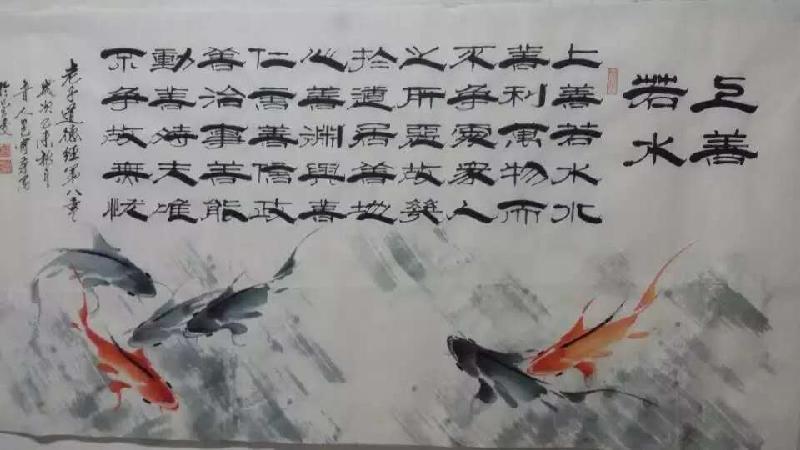 上善
若水
上善若水水
善利萬物而
不争處衆人
之所惡故幾
於道居善地
心善淵與善
仁言善信政
善治事善能
動善時夫唯
不争故無忧
老子道德经第八章